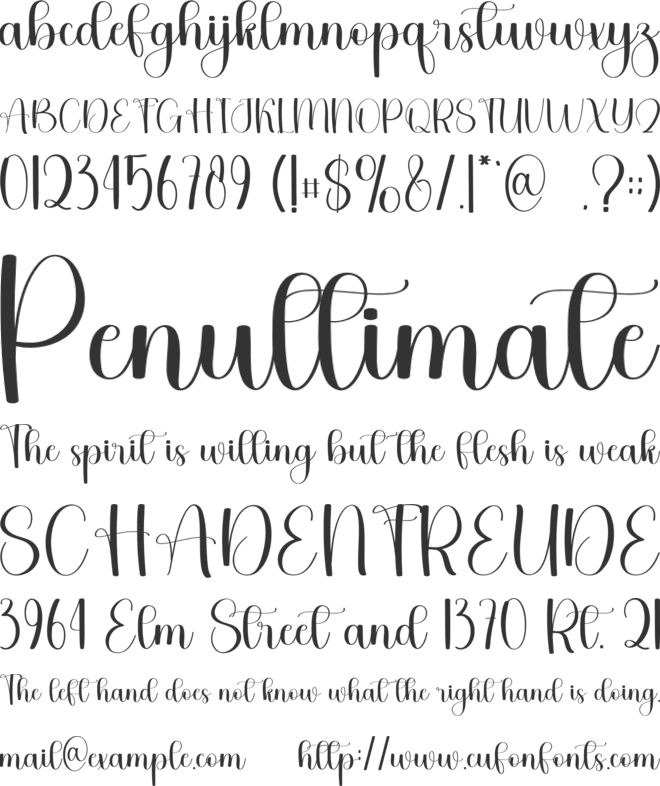 abcdefghijklmnopqrstuvwxyz
ABCDEFGHIJKLMNOPQRSTUVWXYZ
0123456789 (!#$%&/.|*`@ .?::)
Penultimate
The spirit is willing but the flesh is weak
SCHADENFREUDE
3964 Elm Street and 1370 Rt. 21
The left hand does not know what the right hand is doing.
mail@example.com http://www.cufonfonts.com